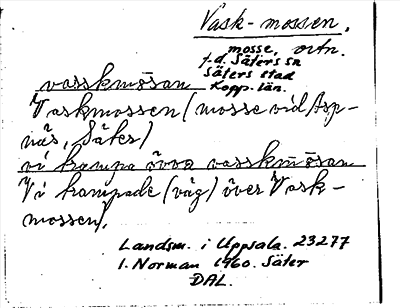 Vask-mossen,
mosse, ortn.
f.d. Säters sn
Säters stad
Kopp. län.
vasskmósan
Vaskmossen (mosse vid Asp-
näs, Säter)
vi krampa övoa vasskmósan
Vi krampade (väg) över Vask-
mossen).
Landsm. i Uppsala. 23277
I. Norman 1960. Säter
DAL.